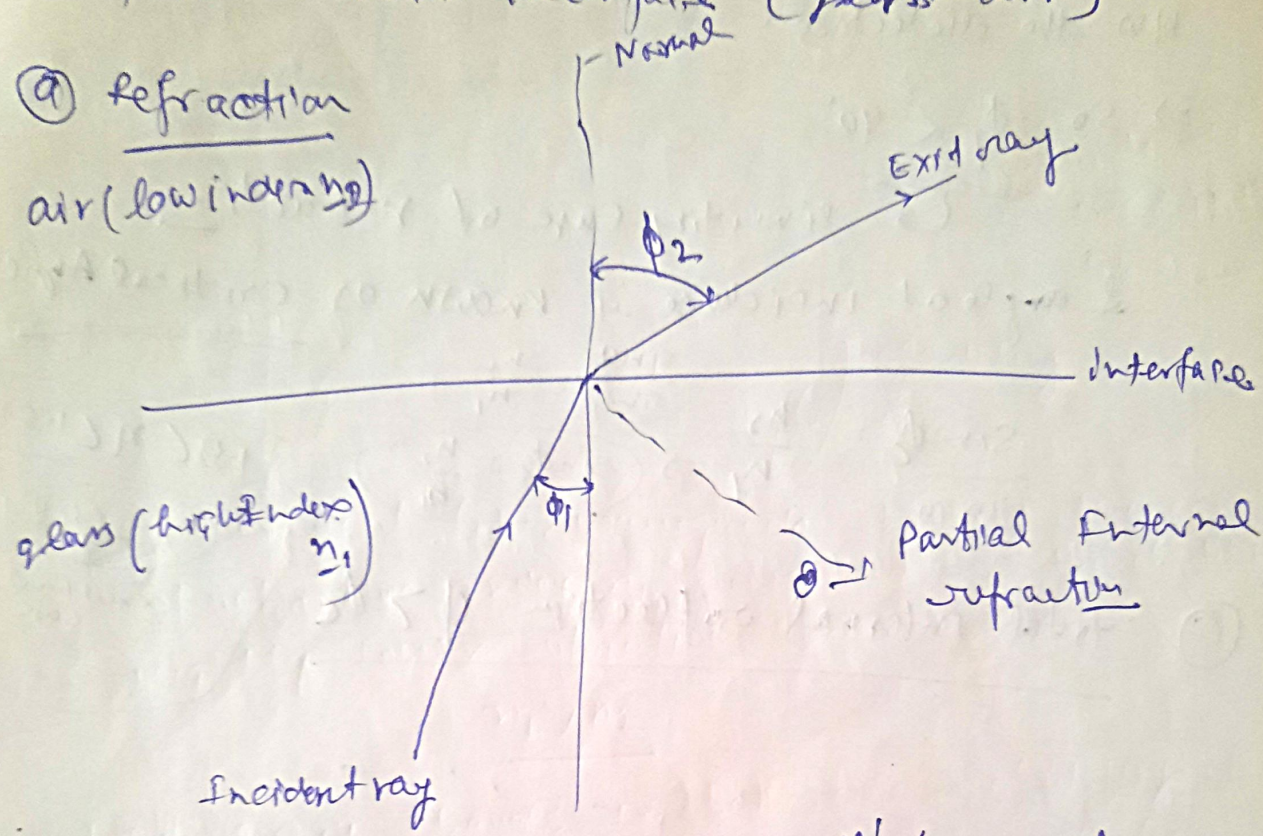 Normal
ⓐ Refraction
air (low index n2)
Exit ray
ϕ2
interface
ϕ1
glass (high Index n1)
Partial Internal
refraction
Incident ray